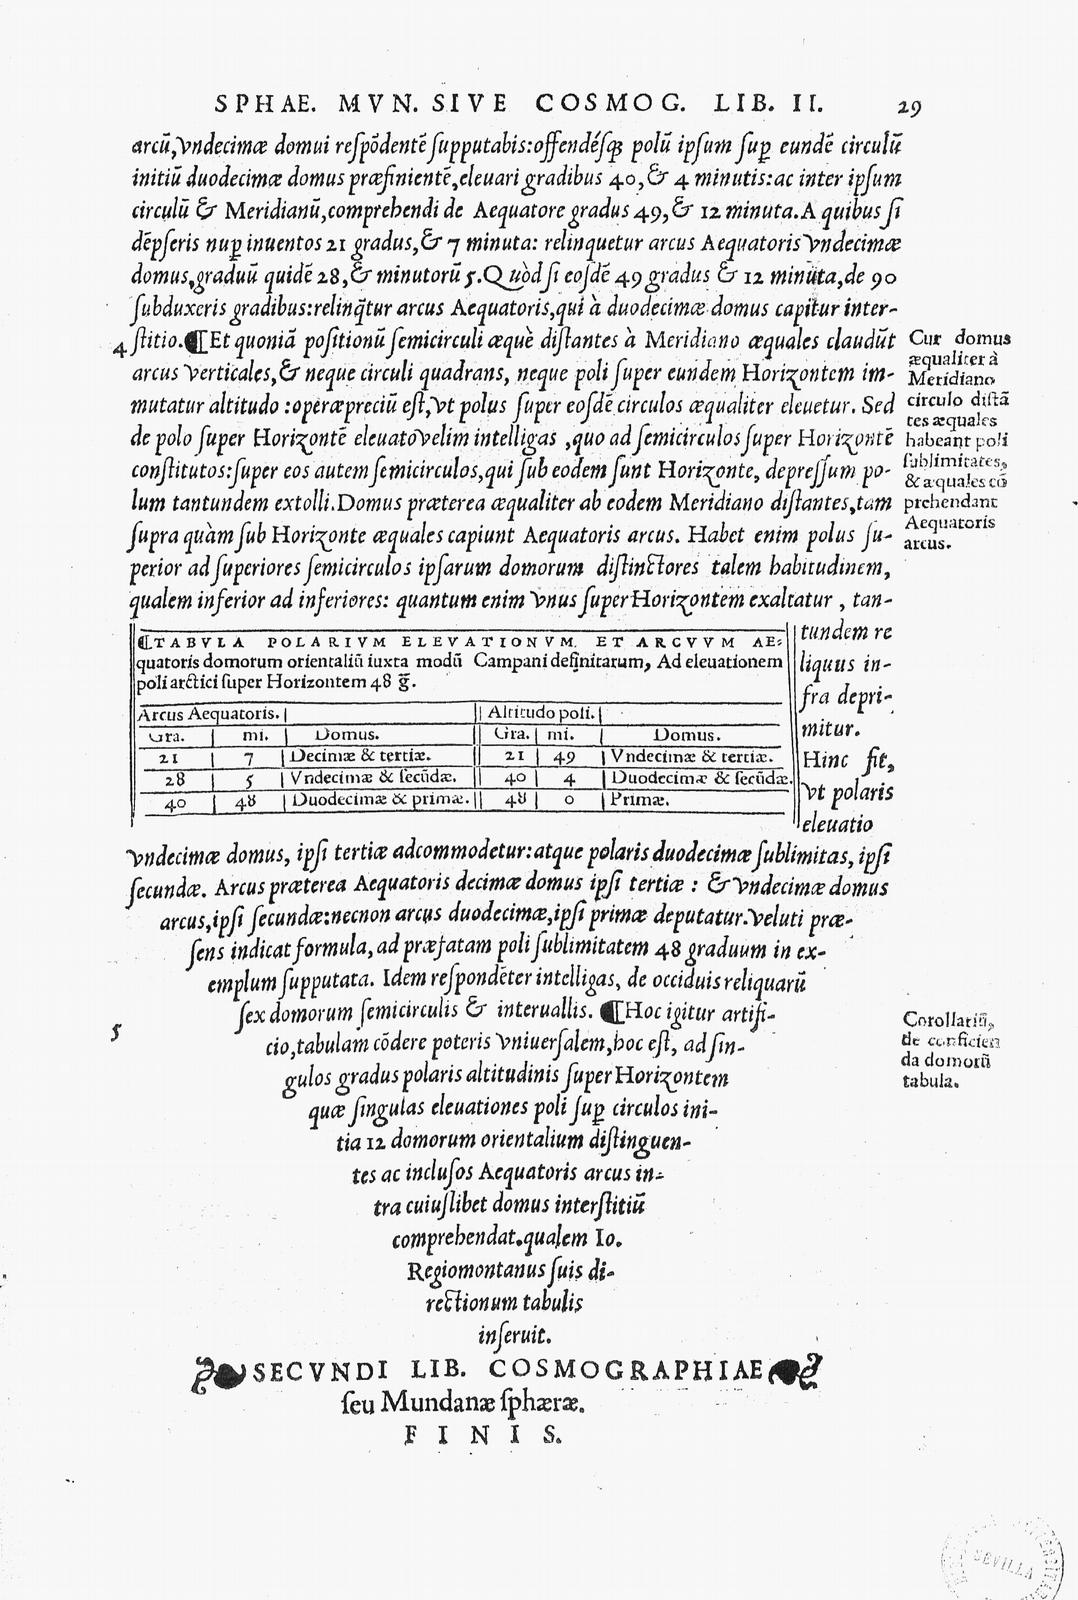 SPHAE. MVN. SIVE COSMOG. LIB. II. 29
arcũ,vndecimæ domui reſpõdentẽ ſupputabis:offendéſq́ꝫ polũ ipſum ſuꝑ eundẽ circulũ
initiũ duodecimæ domus præfinientẽ,eleuari gradibus 40,& 4 minutis:ac inter ipſum
circulũ & Meridianũ,comprehendi de Aequatore gradus 49,& 12 minuta.A quibus ſi
dẽpſeris nuꝑ inuentos 21 gradus,& 7 minuta: relinquetur arcus Aequatoris vndecimæ
domus,graduũ quidẽ 28,& minutorũ 5.Quòd ſi eoſdẽ 49 gradus & 12 minuta,de 90
ſubduxeris gradibus:relinq̃tur arcus Aequatoris,qui à duodecimæ domus capitur inter-
4 ſtitio.¶Et quoniã poſitionũ ſemicirculi æquè diſtantes à Meridiano æquales claudũt
arcus verticales,& neque circuli quadrans, neque poli ſuper eundem Horizontem im-
mutatur altitudo :operæpreciũ eſt,vt polus ſuper eoſdẽ circulos æqualiter eleuetur. Sed
de polo ſuper Horizontẽ eleuato velim intelligas ,quo ad ſemicirculos ſuper Horizontẽ
conſtitutos:ſuper eos autem ſemicirculos,qui ſub eodem ſunt Horizonte, depreſſum po-
lum tantundem extolli.Domus præterea æqualiter ab eodem Meridiano diſtantes,tam
ſupra quàm ſub Horizonte æquales capiunt Aequatoris arcus. Habet enim polus ſu-
perior ad ſuperiores ſemicirculos ipſarum domorum diſtinctores talem habitudinem,
qualem inferior ad inferiores: quantum enim vnus ſuper Horizontem exaltatur , tan-
Cur domus
æqualiter à
Meridiano
circulo diſtã
tes æquales
habeant poli
ſublimitates,
& æquales cõ
prehendant
Aequatoris
arcus.
¶TABVLA POLARIVM ELEVATIONVM ET ARCVVM AE-
quatoris domorum orientaliũ iuxta modũ Campani definitarum, Ad eleuationem
poli arctici ſuper Horizontem 48 g̃.
Arcus Aequatoris. Altitudo poli.
Gra. mi. Domus. Gra. mi. Domus.
21 7 Decimæ & tertiæ. 21 49 Vndecimæ & tertiæ.
28 5 Vndecimæ & ſecũdæ. 40 4 Duodecimæ & ſecũdæ.
40 48 Duodecimæ & primæ. 48 0 Primæ.
tundem re
liquus in-
fra depri-
mitur.
Hinc fit,
vt polaris
eleuatio
vndecimæ domus, ipſi tertiæ adcommodetur:atque polaris duodecimæ ſublimitas, ipſi
ſecundæ. Arcus præterea Aequatoris decimæ domus ipſi tertiæ : & vndecimæ domus
arcus,ipſi ſecundæ:necnon arcus duodecimæ,ipſi primæ deputatur.Veluti præ-
ſens indicat formula, ad præfatam poli ſublimitatem 48 graduum in ex-
emplum ſupputata. Idem reſpondẽter intelligas, de occiduis reliquarũ
ſex domorum ſemicirculis & interuallis. ¶Hoc igitur artifi-
5 cio,tabulam cõdere poteris vniuerſalem,hoc eſt, ad ſin-
gulos gradus polaris altitudinis ſuper Horizontem
quæ ſingulas eleuationes poli ſuꝑ circulos ini-
tia 12 domorum orientalium diſtinguen-
tes ac incluſos Aequatoris arcus in-
tra cuiuſlibet domus interſtitiũ
comprehendat.qualem Io.
Regiomontanus ſuis di-
rectionum tabulis
inſeruit.
Corollariũ,
de conficien
da domorũ
tabula.
SECVNDI LIB. COSMOGRAPHIAE
ſeu Mundanæ ſphæræ.
FINIS.
SEVILLA